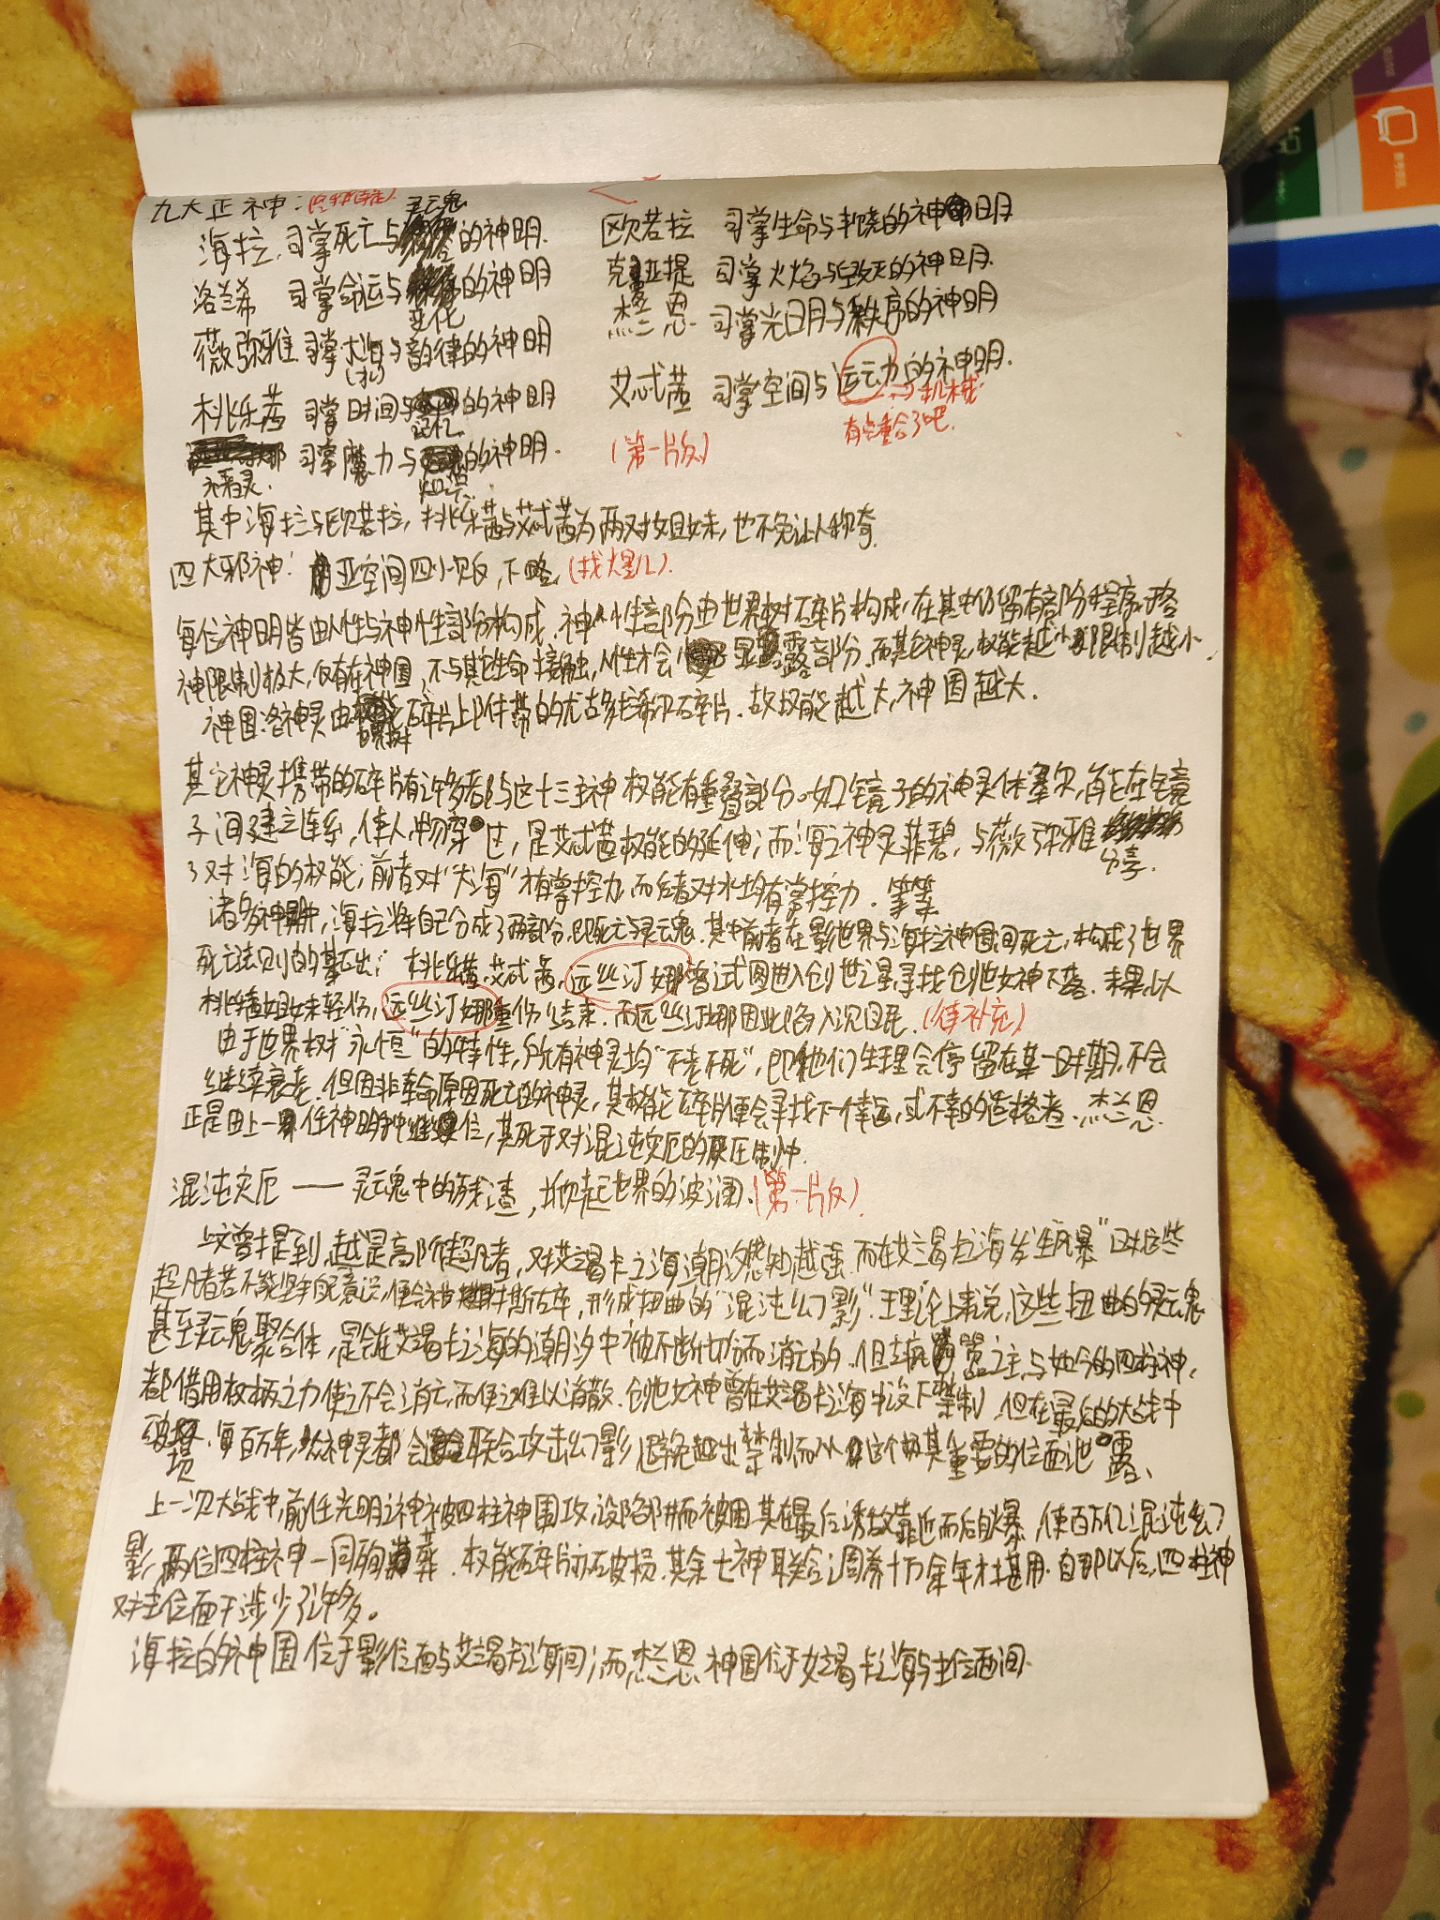 九大正神：
灵魂
海拉，司掌死亡与的神明.
欧若拉 司掌生命与丰饶的神明
洛兰希 司掌命运与的神明
变化
克亚提 司掌火焰与毁灭的神明.
薇弥雅 司掌大海与韵律的神明
(水)
杰兰恩 司掌光明与秩序的神明
桃乐茜 司掌时间与的神明
记忆
艾忒茜 司掌空间与运动的神明.
→机械
有点重合了吧.
司掌魔力与的神明.
知识
(第一版)
其中海拉与欧若拉，桃乐茜与艾忒茜为两对姐妹，也不免让人称奇.
四大邪神：亚空间四小贩，下略，(找大星儿).
每位神明皆由人性与神性部分构成，神性部分由世界树碎片构成，在其中仍留有部分程序.
神限制极大，仅有在神国，不与其它生命接触，人性才会显露部分.而其它神灵，权能越小限制越小.
神国：各神灵由世界树碎片上附带的尤古多拉希尔碎片.故权能越大，神国越大.
其它神灵携带的碎片有许多都与这十三主神权能有重叠部分。如镜子的神灵休塞尔，能在镜
子间建立连系，使人/物穿过，是艾忒茜权能的延伸；而海之神灵菲碧，与薇弥雅分享
了对海的权能；前者对“大海”有掌控力，而后者对水均有掌控力.等等
诸多神明中，海拉将自己分成了两部分，即死亡与灵魂.其中前者在影世界与海拉神国间死亡，构成了世界
死亡法则的基础；桃乐茜，艾忒茜，远丝汀娜曾试图进入创世之星，寻找创世女神下落.未果，以
桃乐茜姐妹轻伤，远丝汀娜重伤结束.而远丝汀娜因此陷入沉眠.(待补充)
由于世界树“永恒”的特性，所有神灵均“不老不死”，即他们生理会停留在某一时期，不会
继续衰老.但因非寿命原因死亡的神灵，其权能碎片便会寻找下一个幸运，或不幸的适格者.杰兰恩
正是由上一任神明继位，其死于对混沌灾厄的压制中.
混沌灾厄——灵魂中的残渣，掀起世界的波澜.(第一版)
上文曾提到，越是高阶超凡者，对艾谒卡之海潮汐感知越强.而在艾谒卡之海发生“风暴”时，这些
超凡者若不能坚牢自我意识，便会被撕碎，形成扭曲的“混沌幻影”.理论上来说，这些扭曲的灵魂
甚至灵魂聚合体，是会在艾谒卡之海的潮汐中被不断切碎而消亡的.但之主与如今的四柱神，
都借用权柄之力使之不会消亡而使之难以消散.创世女神曾在艾谒卡之海中设下禁制，但在最后的大战中
破损.每百万年，众神灵都会联合攻击幻影，避免越出禁制而从这个极其重要的位面泄露.
上一次大战中，前任光明之神被四柱神围攻，设陷阱而被困，其在最后诱敌靠近而后自爆，使百万亿混沌幻
影，两位四柱神一同殉葬.权能碎片破损，其余七神联合温养十万余年才堪用.自那以后，四柱神
对主位面干涉少了许多。
海拉的神国位于影位面与艾谒卡之海间；而杰兰恩神国位于艾谒卡之海与主位面间.